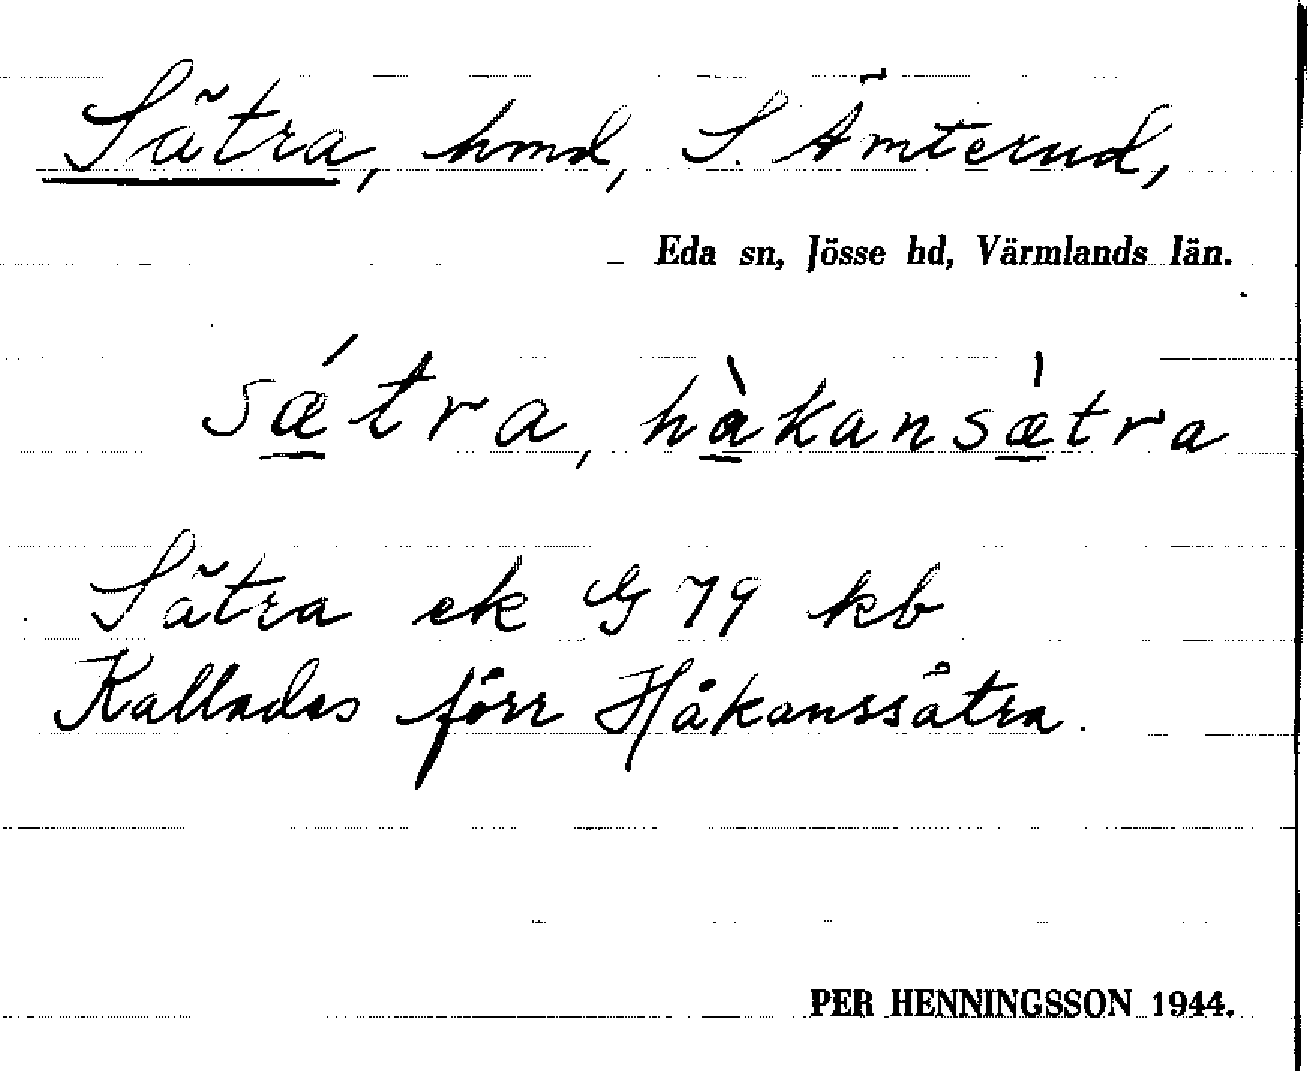 Sätra, hmd, S. Ämterud,
Eda sn, Jösse hd, Värmlands län.
sǽtra, hàkansæ̀tra
Sätra ek G 79 kb
Kallades förr Håkanssätra.
PER HENNINGSSON 1944.